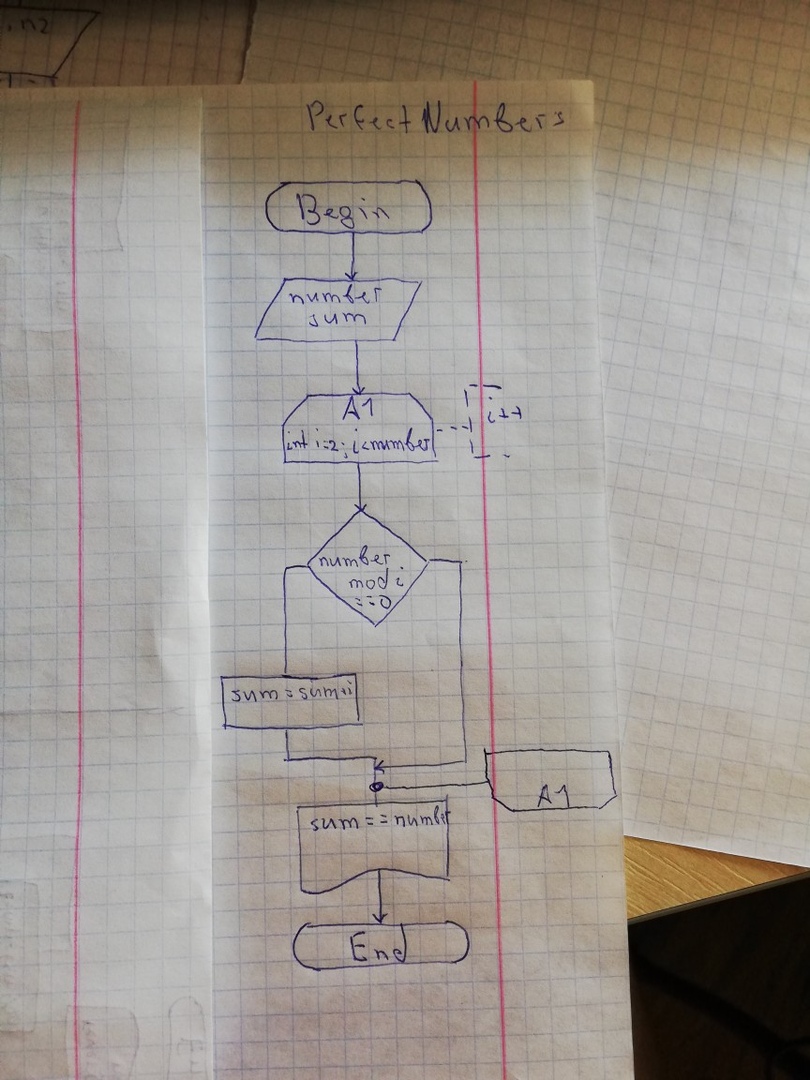 , n2
Perfect Numbers
Begin
number
sum
A1
int i=2; i<number
i++
number
mod i
==0
sum=sum+i
A1
sum==number
End